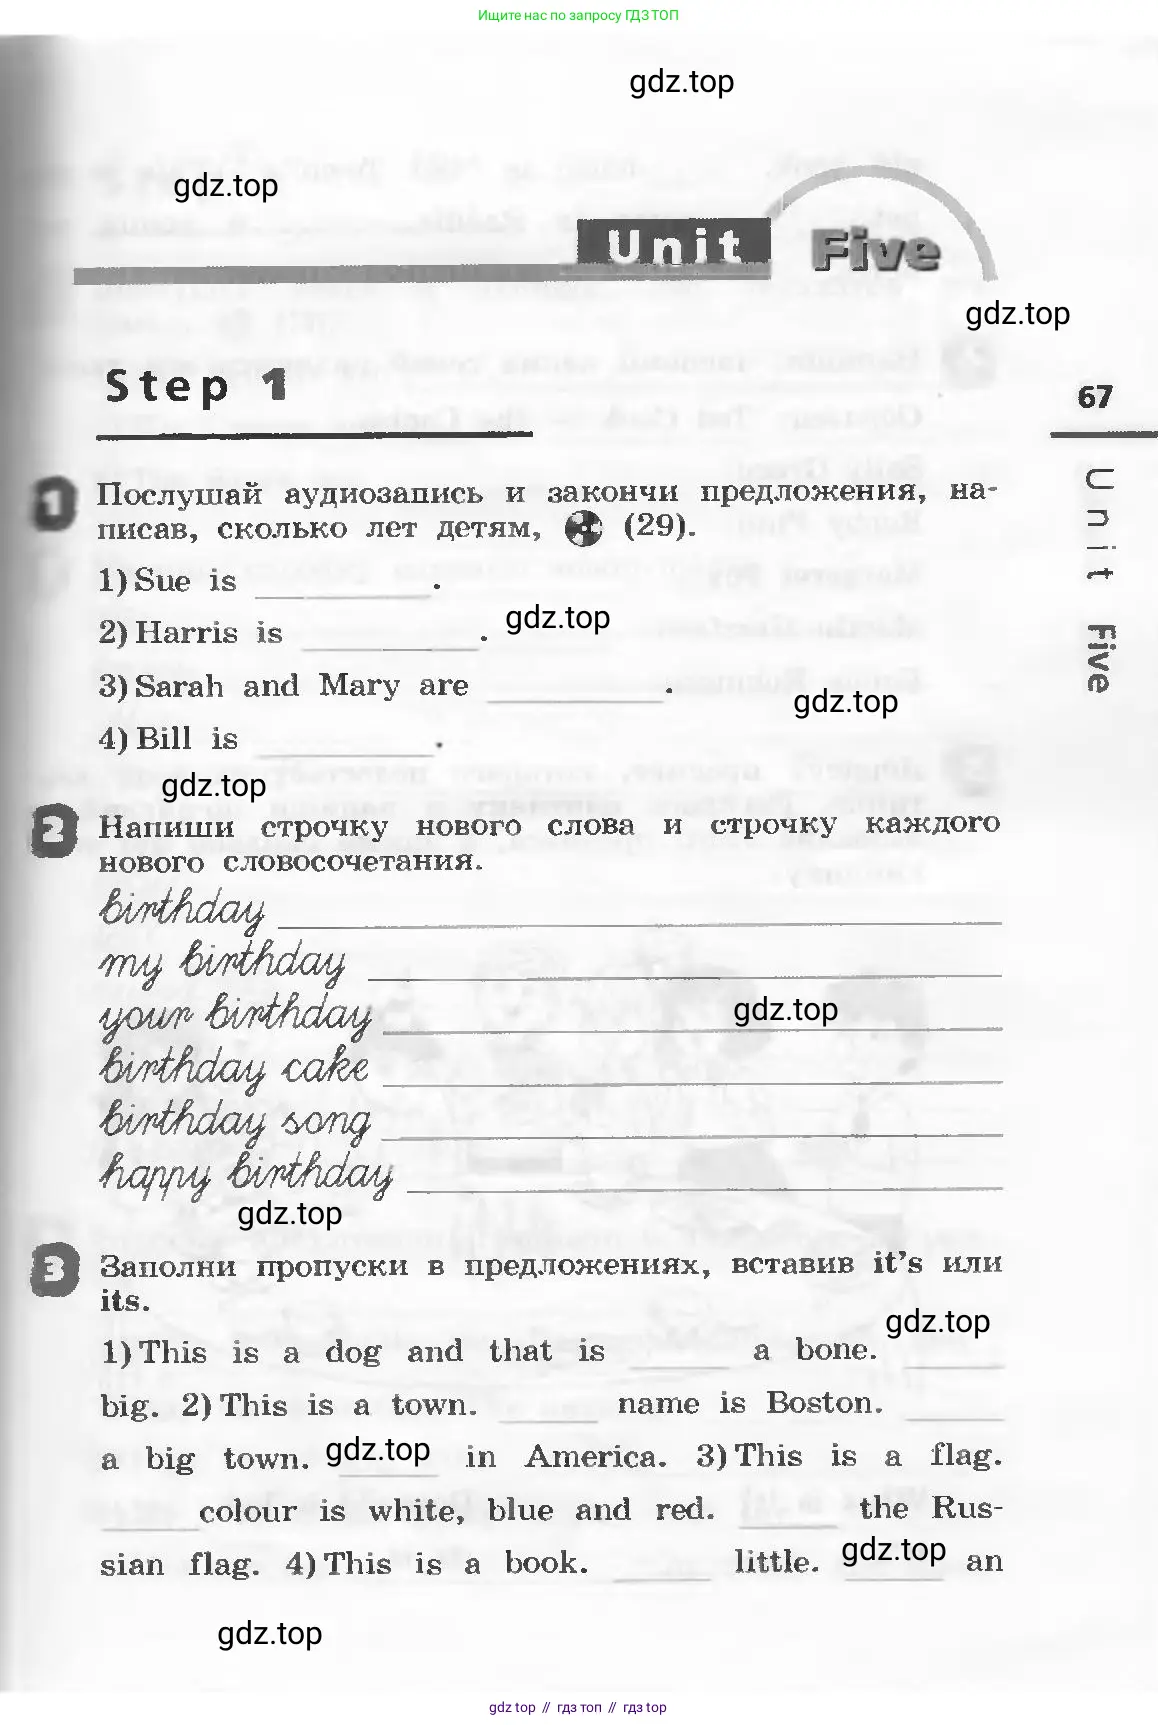 Ищите нас по запросу ГДЗ ТОП
gdz.top
gdz.top
Unit Five
gdz.top
Step 1
67
Unit Five
1 Послушай аудиозапись и закончи предложения, на-
писав, сколько лет детям, (29).
1) Sue is ____ .
2) Harris is ____ .
gdz.top
3) Sarah and Mary are ____ .
gdz.top
4) Bill is ____ .
gdz.top
2 Напиши строчку нового слова и строчку каждого
нового словосочетания.
birthday
my birthday
your birthday
gdz.top
birthday cake
birthday song
happy birthday
gdz.top
3 Заполни пропуски в предложениях, вставив it's или
its.
gdz.top
1) This is a dog and that is ____ a bone. ____
big. 2) This is a town. ____ name is Boston. ____
a big town. ____ in America. 3) This is a flag.
gdz.top
____ colour is white, blue and red. ____ the Rus-
sian flag. 4) This is a book. ____ little. ____ an
gdz.top
gdz.top
gdz top // гдз топ // гдз top